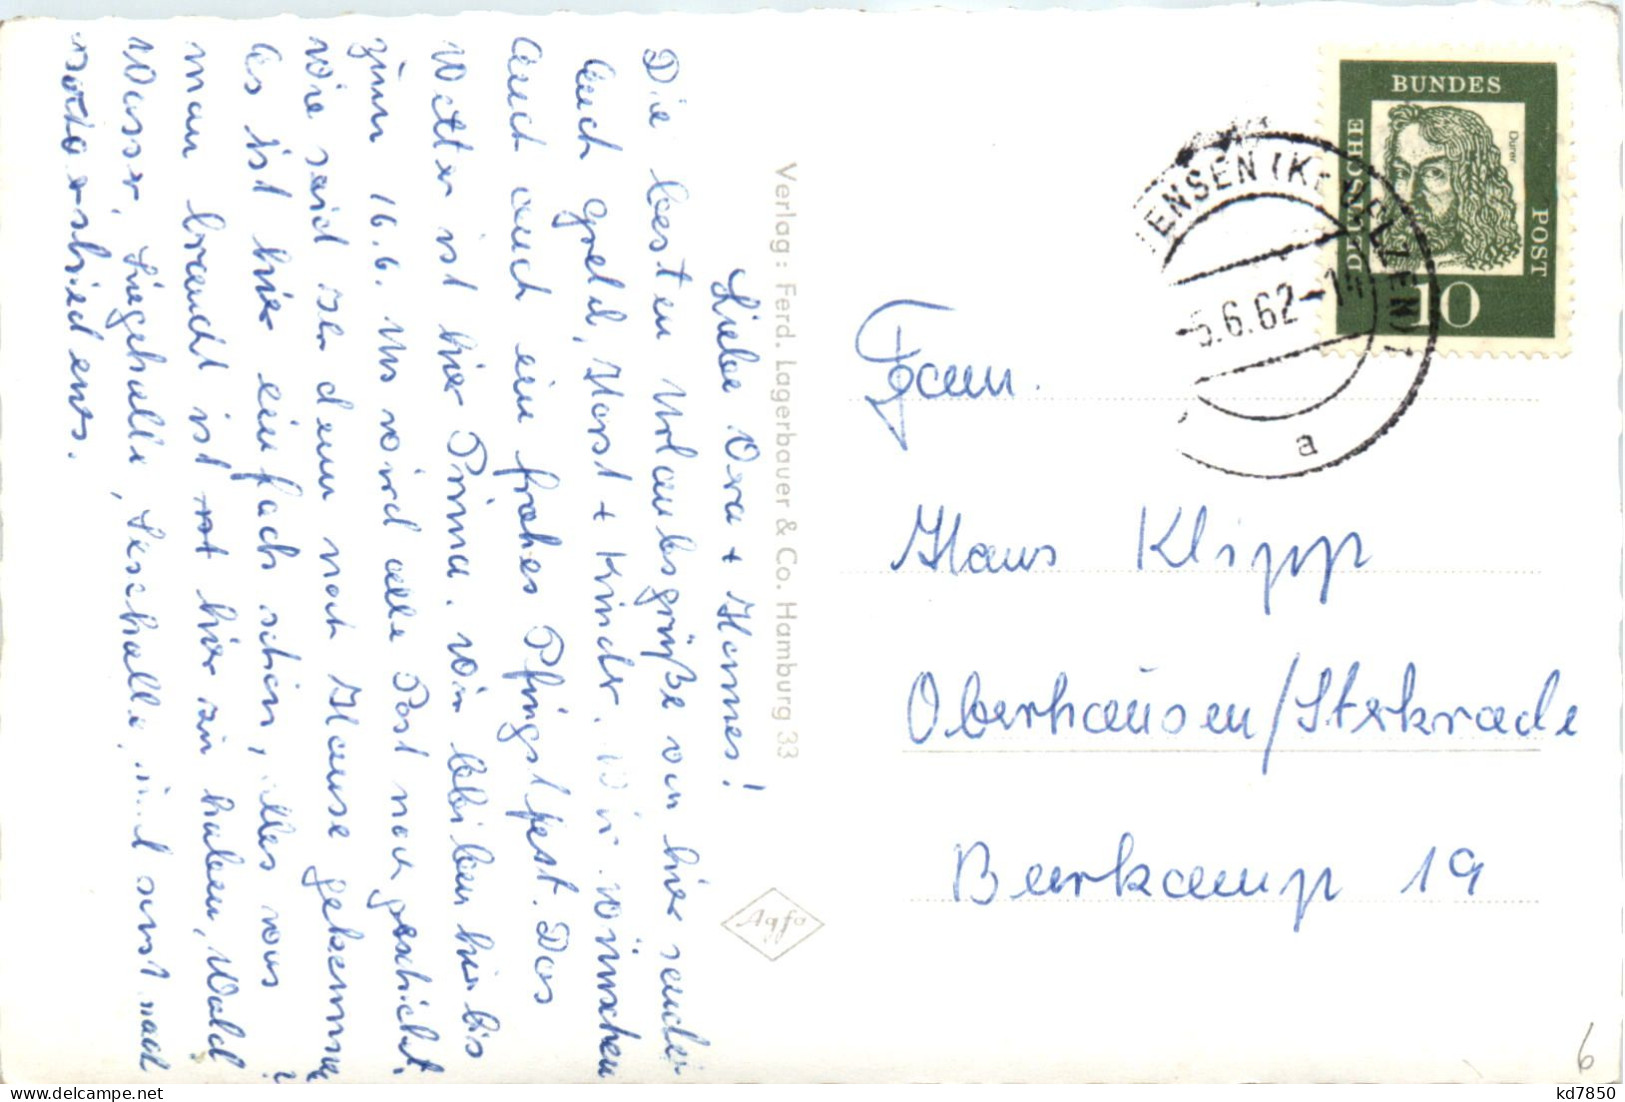 Liebe Ora + Hannes!
Die besten Urlaubsgrüße von hier sendet
Euch Gretel, Horst + Kinder. Wir wünschen
Euch auch ein frohes Pfingstfest. Das
Wetter ist hier Prima. Wir bleiben hier bis
zum 16.6. Uns wird alle Post nachgeschickt.
Wie seid ihr denn nach Hause gekommen?
Es ist hier einfach schön, alles was
man braucht ist hier zu haben, Wald
Wasser, Liegehalle, Lesehalle, und sonst noch
verschiedenes.
Verlag: Ferd. Lagerbauer & Co. Hamburg 33
Agfa
DEUTSCHE
BUNDES
POST
Dürer
10
ENSEN (KR UELZEN)
-5.6.62-1
a
Fam.
Hans Klipp
Oberhausen/Sterkrade
Beerkamp 19
6
kd7850